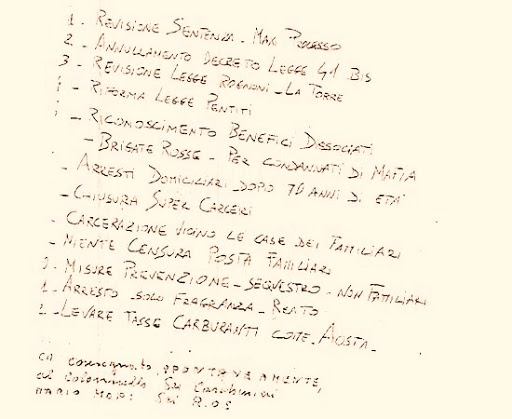 1 - REVISIONE SENTENZA - MAXI PROCESSO
2 - ANNULLAMENTO DECRETO LEGGE 41 BIS
3 - REVISIONE LEGGE ROGNONI - LA TORRE
- RIFORMA LEGGE PENTITI
- RICONOSCIMENTO BENEFICI DISSOCIATI
- BRIGATE ROSSE - PER CONDANNATI DI MAFIA
- ARRESTI DOMICILIARI DOPO 70 ANNI DI ETA'
- CHIUSURA SUPER CARCERI
- CARCERAZIONE VICINO LE CASE DEI FAMILIARI
- NIENTE CENSURA POSTA FAMILIARI
- MISURE PREVENZIONE - SEQUESTRO - NON FAMILIARI
1 - ARRESTO - SOLO FRAGRANZA - REATO
2 - LEVARE TASSE CARBURANTI COME - AOSTA -
consegnato, SPONTANEAMENTE,
al Colonnello dei Carabinieri
MARIO MORI dei R.O.S